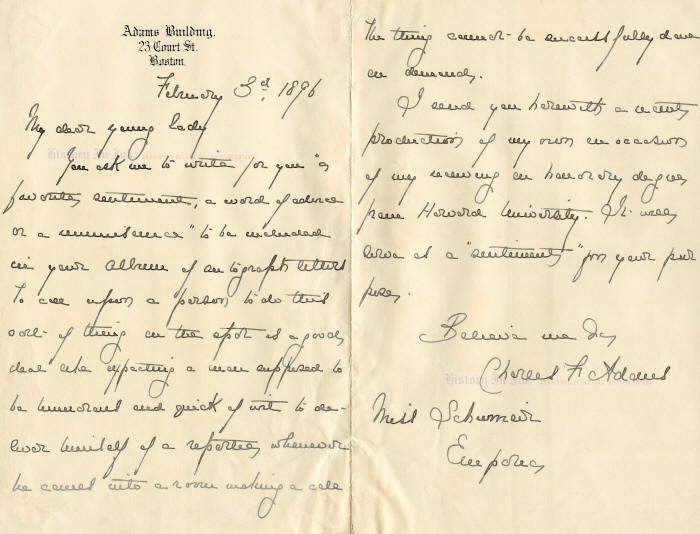 Adams Building.
23 Court St.
Boston.
February 3d, 1896
My dear young Lady
You ask me to write for you "a
favorite sentiment, a word of advice
or a reminiscence" to be included
in your album of autograph letters
To call upon a person to do this
sort of thing on the spot is a good
deal like expecting a man supposed to
be humorous and quick of wit to de-
liver himself of a repartee whenever
he comes into a room making a call
The thing cannot be successfully done
on demand.
I send you herewith a recent
production of my own on occasion
of my receiving an honorary degree
from Harvard University. It will
serve as a "sentiment" for your pur
pose.
Believe me &c
Charles F. Adams
Miss Schumair
Emporia
History In Ink
History In Ink